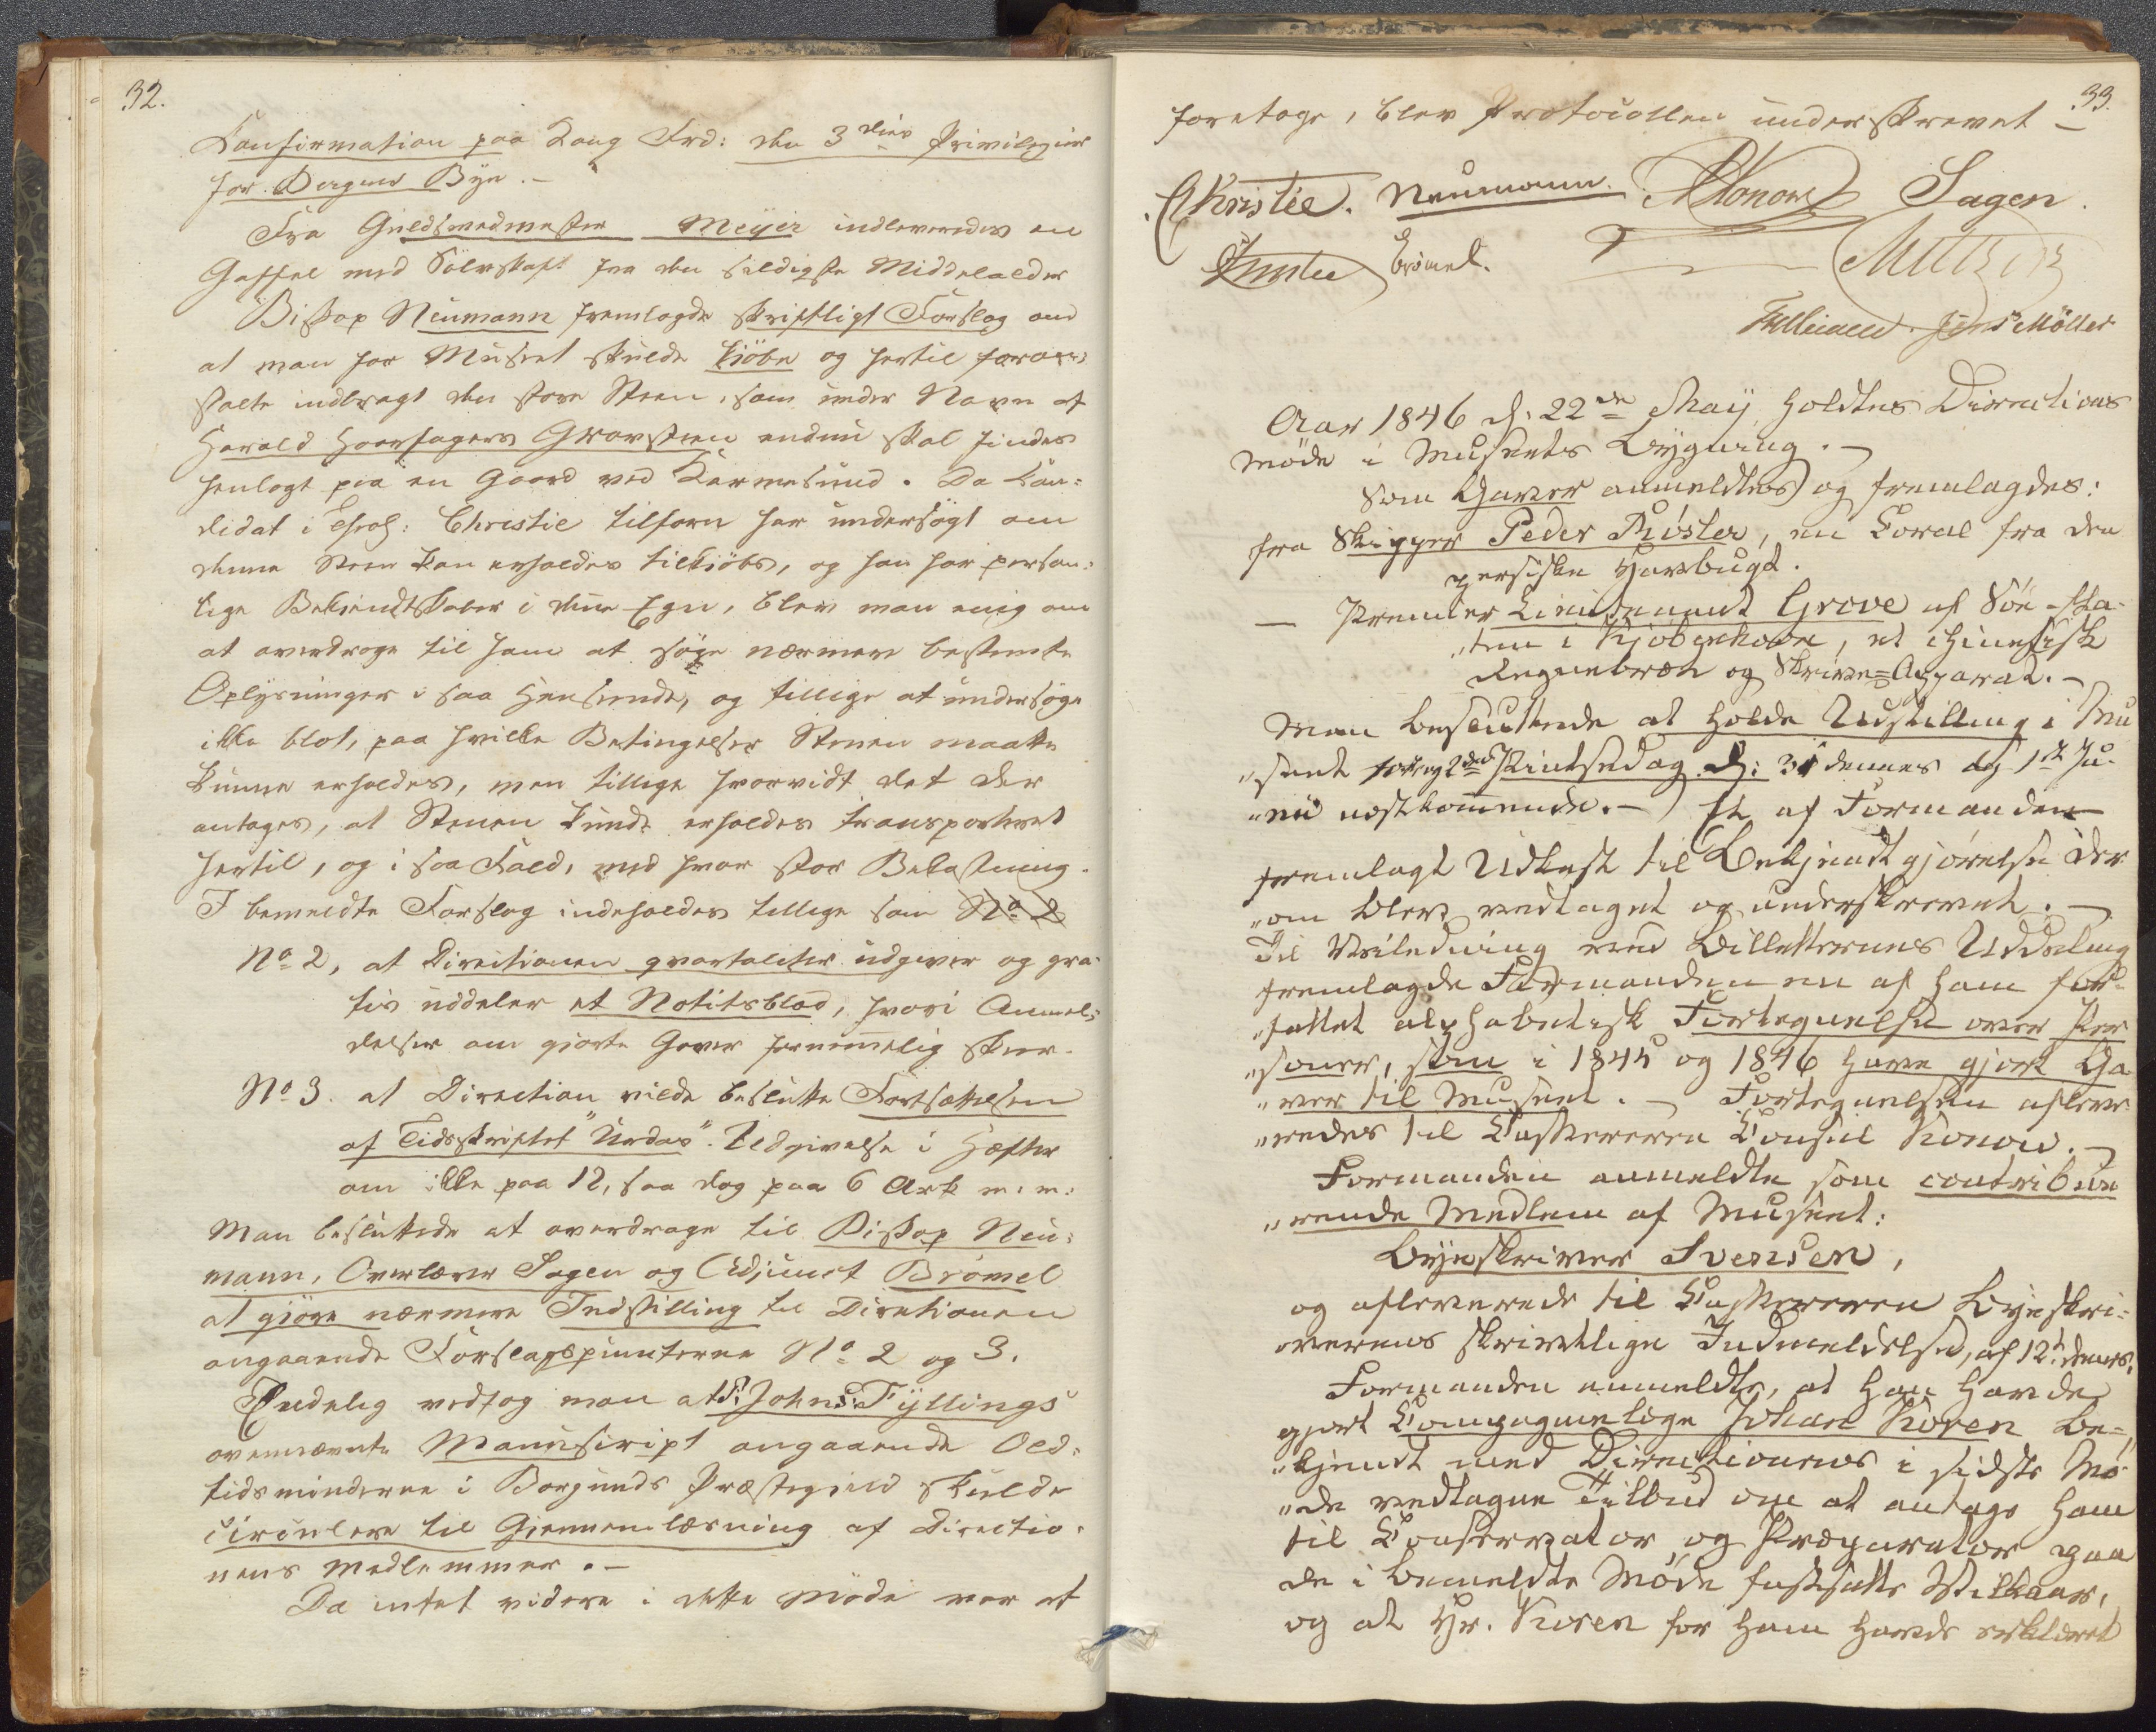 32.
Confirmation paa Kong Frd: den 3dies Privilegier
for Bergens Bÿe. –
Fra Guldsmedmester Meÿer indleveredes en
Gaffel med Sölvskaft fra den sildigste Middelalder
Biskop Neumann fremlagde skriftligt Forslag om
at man for Museet skulde kiöbe og hertil foran-
stalte indbragt den store Steen, som under Navn af
Harald Haarfagers Gravsteen endnu skal findes
henlagt paa en Gaard ved Karmesund. Da Can-
didat i Theol: Christie tilforn har undersögt om
denne Steen kan erholdes tilkiöbs, og han har person-
lige Bekiendtskaber i denne Egn, blev man enig om
at overdrage til ham at söge nærmere bestemte
Oplÿsninger i saa Henseende, og tillige at undersöge
ikke blot, paa hvilke Betingelser Stenen maatte
kunne erholdes, men tillige hvorvidt det der
antages, at Stenen kunde erholdes transporteret
hertil, og i saa Fald, med hvor stor Bekostning.
I bemeldte Forslag indeholdes tillige som No 2
No 2, at Directionen qvartaliter udgiver og gra-
tis uddeler et Notitsblad, hvori Anmel-
delser om giorte Gaver fornemmelig skeer.
No 3. at Direction vilde beslutte Fortsættelsen
af Tidsskriftet "Urdas". Udgivelse i Hefter
om ikke paa 12, saa dog paa 6 Ark m: m:
Man besluttede at overdrage til Biskop Neu-
mann, Overlærer Sagen og Adjunct Brömel
at giöre nærmere Indstilling til Directionen
angaaende Forslagspuncterne No 2 og 3.
Endelig vedtog man at P: Johns: Fÿllings
ovennævnte Manuscript angaaende Old-
tidsminderne i Borgunds Præstegield skulde
circulere til Giennemlæsning af Directio-
nens Medlemmer. –
Da intet videre i dette Möde var at
33.
foretage, blev Protocollen underskrevet –
Christie. Neumann. Konow Sagen.
Brömel.
Jens Möller
Aar 1846 d: 22de Maÿ holdtes Directions
Möde i Museets Bÿgning. –
Som Gaver anmeldtes og fremlagdes:
fra Skipper Peder Röster, en Coral fra den
persiske Havbugt.
— Premier Lieutenant Grove af Söe-Eta-
"ten i Kjöbenhavn, et chinesisk
Regnebræt og Skrive-Apparat. –
Man besluttede at holde Udstilling i Mu
"seet 1ste og 2den Pintsedag d: 31 dennes og 1ste Ju-
"nii nestkommende. – Et af Formanden
fremlagt Udkast til Bekjendtgjörelse der
"om blev vedtaget og underskrevet. –
Til Veiledning ved Billetternes Uddeling
fremlagde Formanden en af ham for-
"fattet alphabetisk Fortegnelse over Per
"soner, som i 1845 og 1846 have gjort Ga
"ver til Museet. – Fortegnelsen afleve
"redes til Casseereren Consul Konow. –
Formanden anmeldte som contribue
"rende Medlem af Museet:
Bÿeskriver Svensen,
og afleverede til Casseereren Bÿeskri-
verens skrivtlige Indmeldelse, af 12t dennes.
Formanden anmeldte, at han havde
gjort Compagnielæge Johan Koren be-
"kjendt med Directionens i sidste Mö
"de vedtagne Tilbud om at antage ham
til Conservator og Præparator paa
de i bemeldte Möde fastsatte Vilkaar,
og at Hr. Koren for ham havde erklæret